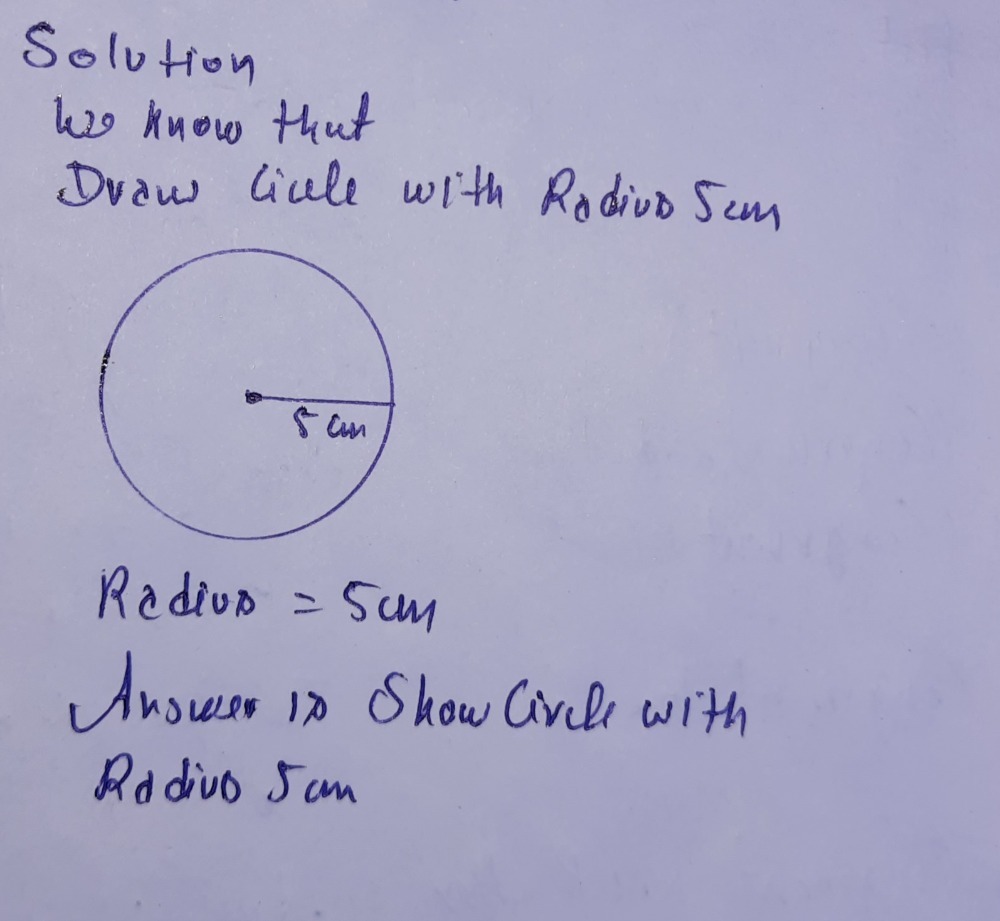 Solution
We know that
Draw Circle with Radius 5cm
5 cm
Radius = 5cm
Answer is Show Circle with
Radius 5 cm